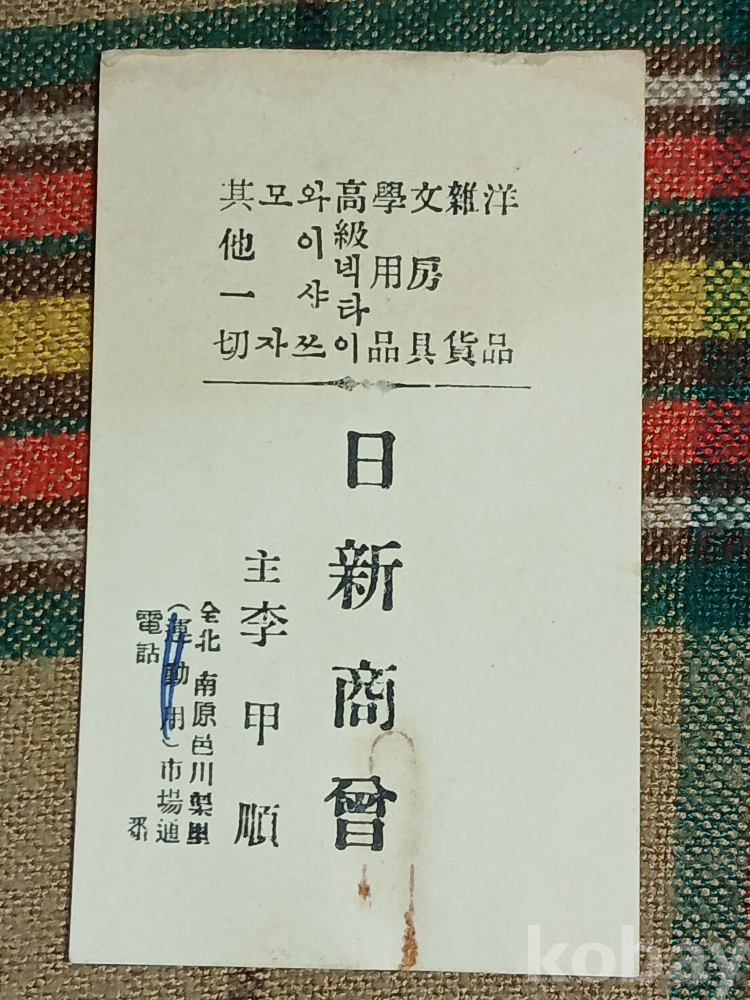 洋品
雜貨
文房具
學用品
高級넥타이
와이샤쯔
모자
其他一切
日新商會
主 李甲順
全北 南原邑川渠里
(運動用)市場通
電話 番
kobay